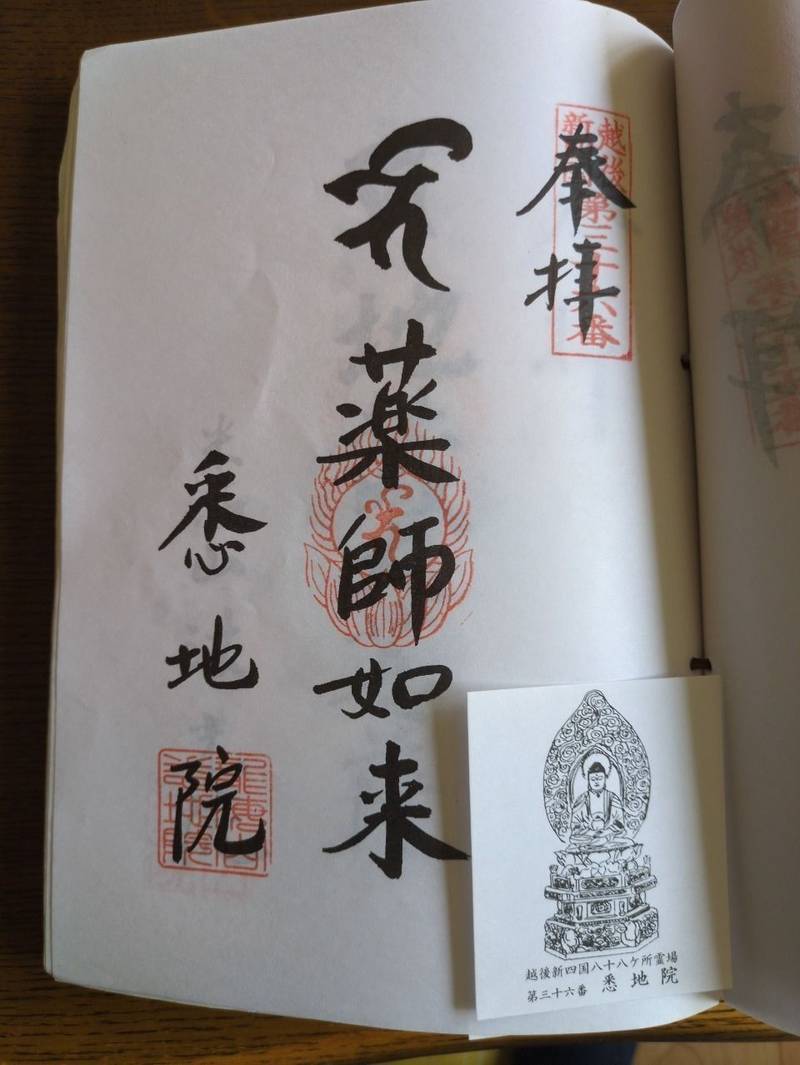 奉拝
越後
新四国第三十六番
薬師如来
悉地院
越後新四国八十八ケ所霊場
第三十六番 悉地院